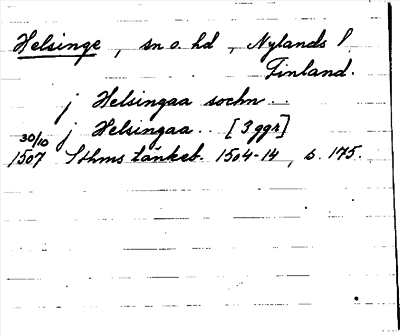 Helsinge, sn o. hd, Nylands l.
Finland.
j Helsingaa sochn..
j Helsingaa.. [3 ggr]
30/10
1507 Sthms tänkeb. 1504-14, s. 175.